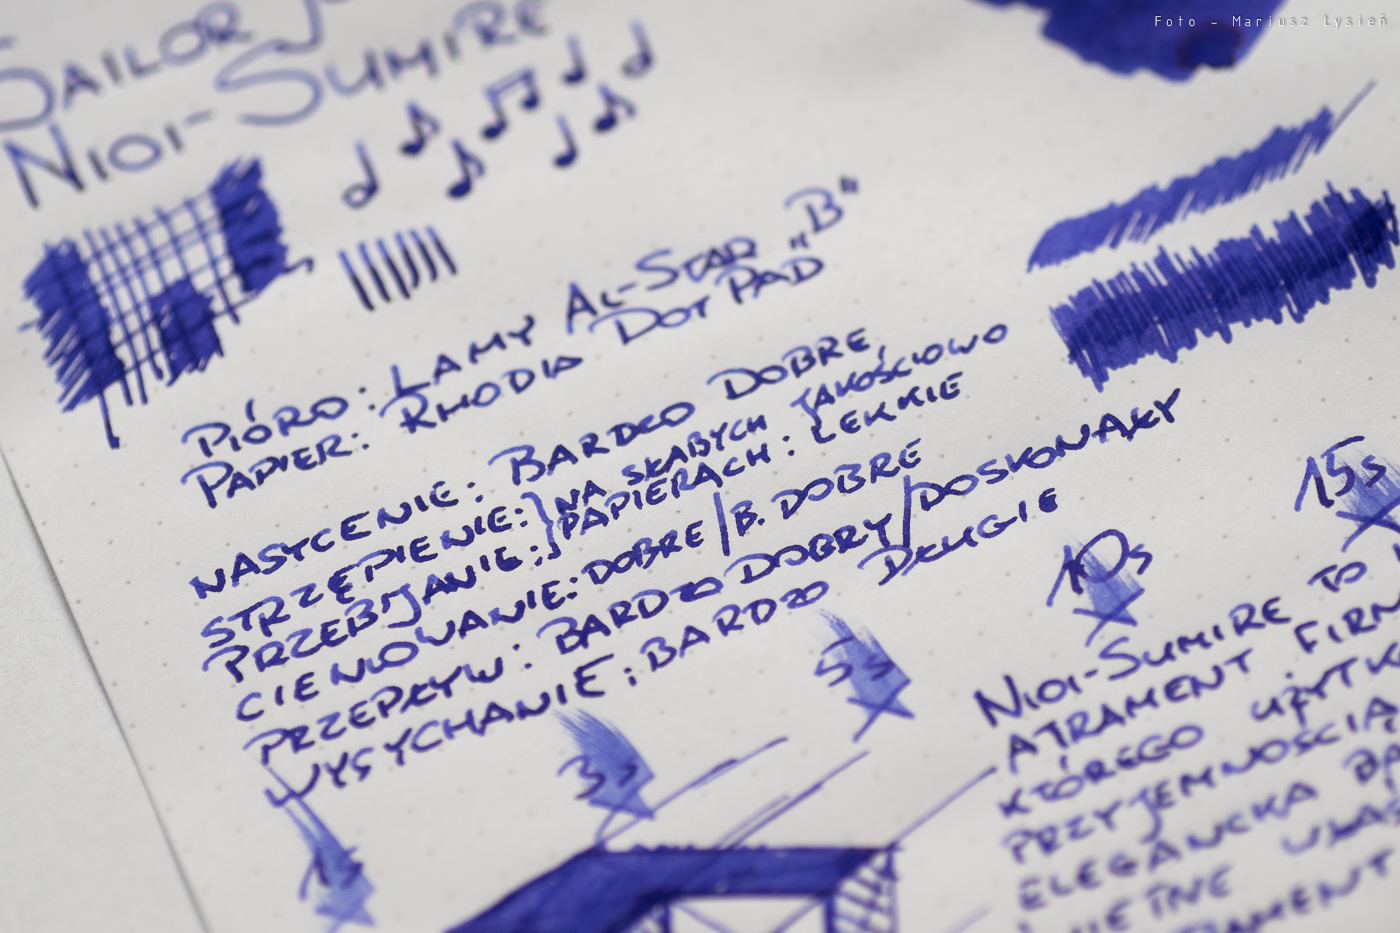 Foto - Mariusz Łysień
SAILOR
NIOI-SUMIRE
PIÓRO: LAMY AL-STAR „B"
PAPIER: RHODIA DOT PAD
NASYCENIE: BARDZO DOBRE,
STRZĘPIENIE: } NA SŁABYCH JAKOŚCIOWO
PRZEBIJANIE: } PAPIERACH: LEKKIE
CIENIOWANIE: DOBRE / B. DOBRE
PRZEPŁYW: BARDZO DOBRY / DOSKONAŁY
WYSYCHANIE: BARDZO DŁUGIE
1s
3s
5s
10s
15s
NIOI-SUMIRE TO
ATRAMENT
KTÓREGO
PRZYJEMNOŚCIĄ
ELEGANCKA